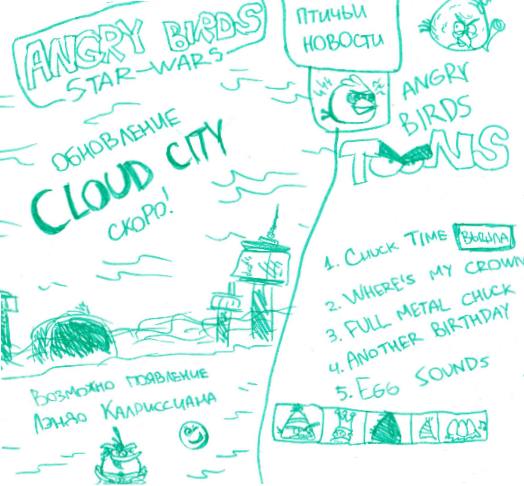 ANGRY BIRDS
STAR-WARS
ОБНОВЛЕНИЕ
CLOUD CITY
СКОРО!
ВОЗМОЖНО ПОЯВЛЕНИЕ
ЛЭНДО КАЛРИССИАНА
ПТИЧЬИ
НОВОСТИ
ANGRY
BIRDS
TOONS
1. CHUCK TIME ВЫШЛА
2. WHERE'S MY CROWN
3. FULL METAL CHUCK
4. ANOTHER BIRTHDAY
5. EGG SOUNDS